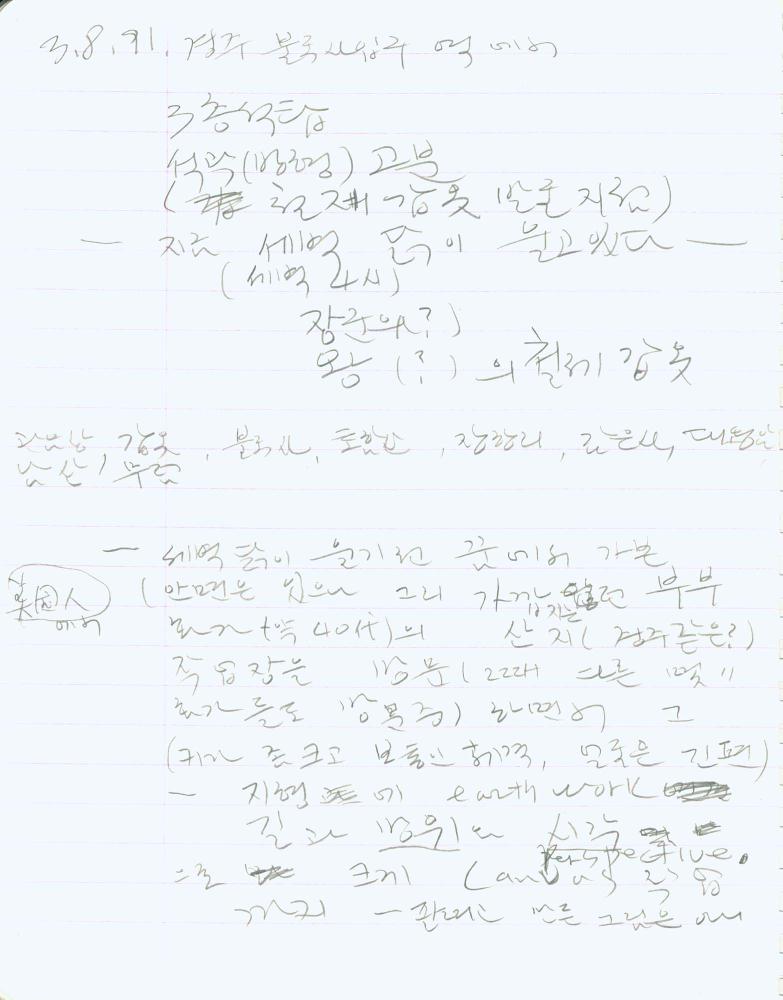 3.8.91. 경주 불국사입구 역에서
3층석탑
석곽(방형) 고분
( 철제 갑옷 발굴지점)
— 지금 새벽 닭이 울고있다 —
(새벽 4시)
장군의?)
왕 (?) 의 철제 갑옷
갑옷, 불국사, 토함산, 장항리, 감은사, 대왕암
남산, 무덤
— 새벽 닭이 울기전 꿈에서 가본
美国人 (안면은 있으나 그리 가깝지는 않던 부부
에서 화가(약 40代)의 산지(경주같은?)
작업장을 방문(그때 다른 몇
화가들도 방문중) 하면서 그
(키가 좀 크고 보통인 체격, 얼굴은 긴편)
— 지형에 earth work
길과 방위의 시각
perspective.
으로 크게 canvas 작업
까지 — 만든 그림은